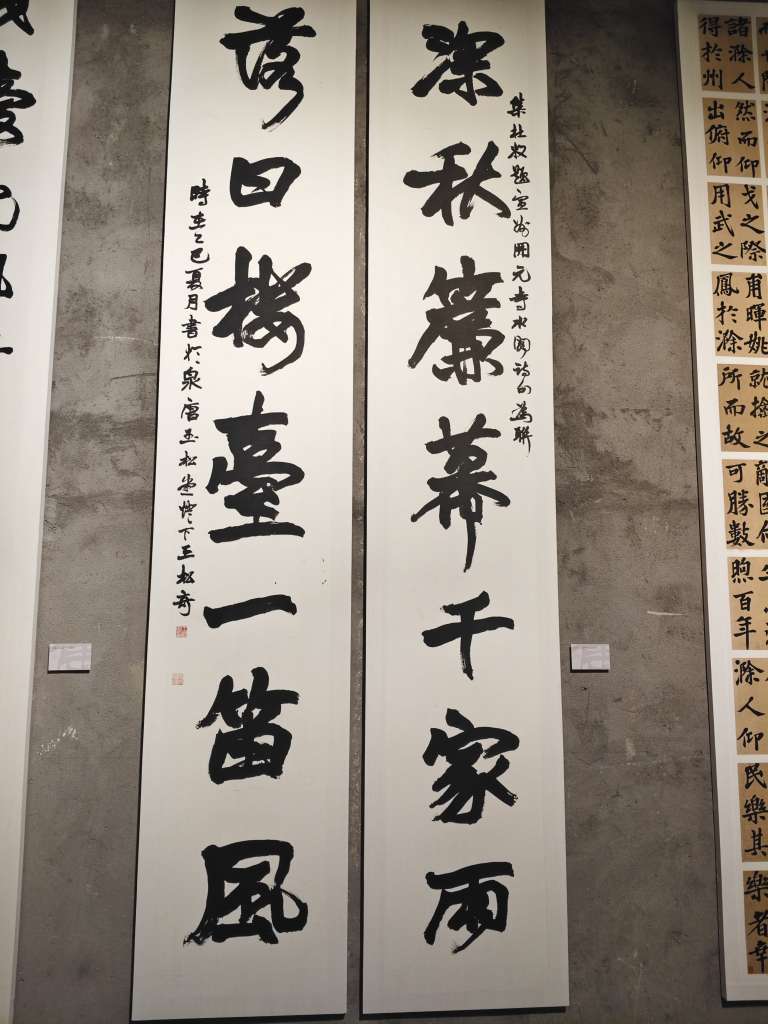 深秋簾幕千家雨
集杜牧題宣州開元寺水閣詩句為聯
落日樓臺一笛風
時在乙巳夏月書於泉唐玉松堂燈下王松奇
諸滁人
得於州
然而仰
出俯仰
戈之際
用武之
甫暉姚
鳳於滁
就擒之
所而故
敵國何
可勝數
煦百年
滁人仰
民樂其
樂者幸